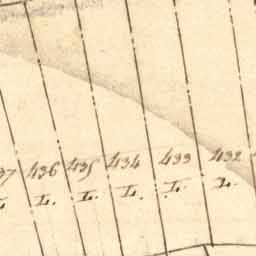 436 435 434 433 432
L. L. L. L. L.